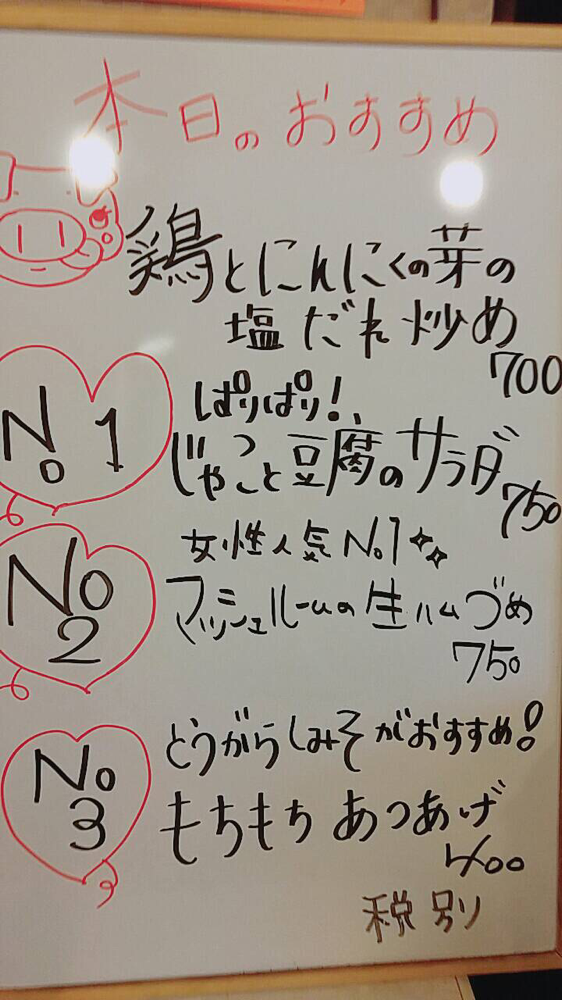 本日のおすすめ
鶏とにんにくの芽の
塩だれ炒め
700
No 1
ぱりぱり!、
じゃこと豆腐のサラダ
750
No 2
女性人気No.1
マッシュルームの生ハムづめ
750
No 3
どうがらしみそがおすすめ!
もちもちあつあげ
400
税別